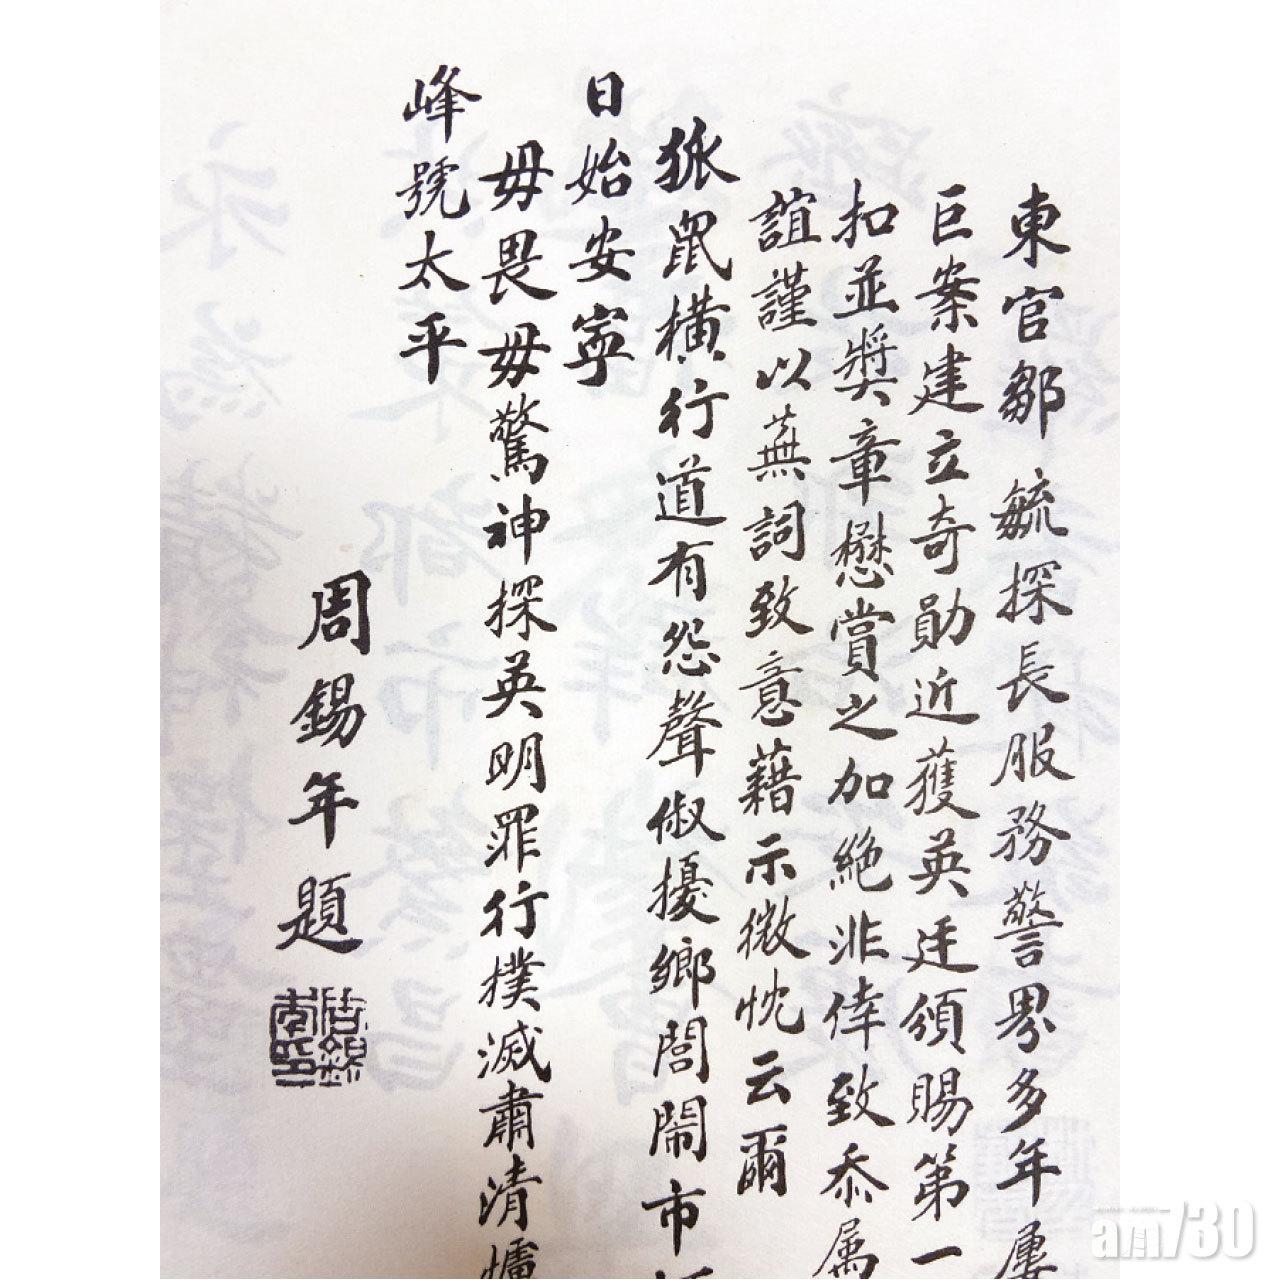 東官鄒 毓探長服務警界多年屢
巨案建立奇勛近獲英廷頒賜第一
扣並獎章懋賞之加絕非倖致忝属
誼謹以蕪詞致意藉示微忱云爾
狐鼠橫行道有怨聲俶擾鄉閭鬧市
日始安寧
毋畏毋驚神探英明罪行撲滅肅清
峰號太平
周錫年題
am730